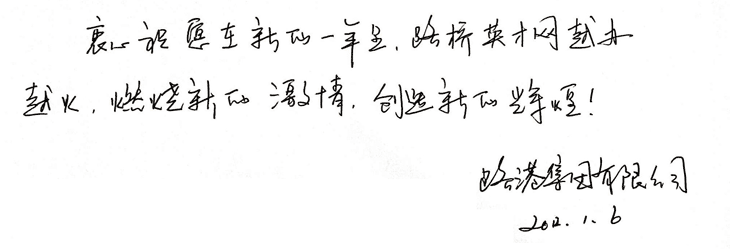 衷心祝愿在新的一年里，路桥英才网越办
越火，燃烧新的激情，创造新的辉煌！
路港集团有限公司
2012.1.6